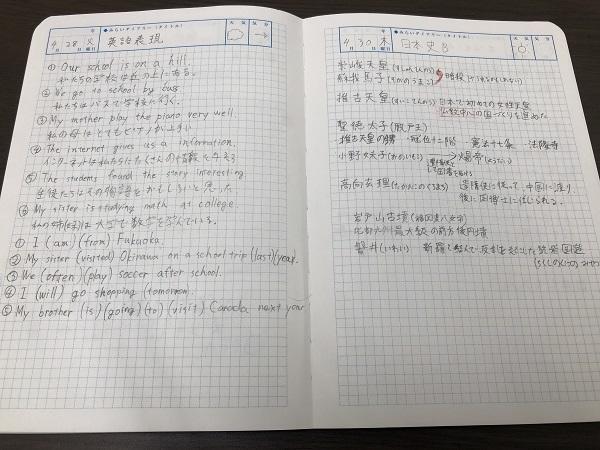 年 みらいダイアリー(タイトル) 天気 気分
4月 28 火曜日 英語表現
① Our school is on a hill.
私たちの学校は丘の上にある。
② We go to school by bus
私たちはバスで学校に行く。
③ My mother play the piano very well.
私の母はとてもピアノが上手い
④ The internet gives us a information.
インターネットは私たちにたくさんの情報を与える
⑤ The students found the story interesting
生徒たちはその物語をおもしろいと思った
⑥ My sister is studying math at college
私の姉(妹)は大学で数学を学んでいる。
① I (am) (from) Fukuoka.
② My sister (visited) Okinawa on a school trip (last) (year.
③ We (often) (play) soccer after school.
④ I (will) go shopping (tomorrow.
⑤ My brother (is) (going) (to) (visit) Canada next year
年 みらいダイアリー(タイトル) 天気 気分
4月 30 木曜日 日本史B
崇峻天皇(すしゅんてんのう)
蘇我馬子(そがのうまこ) 暗殺
推古天皇(すいこてんのう) 日本で初めての女性天皇
仏教中心の国づくりを進めた
聖徳太子(厩戸王)
推古天皇の甥 冠位十二階 憲法十七条 法隆寺
小野妹子(おののいもこ) → 煬帝(ようだい)
高向玄理(たかむこのくろまろ) 遣隋使に従って、中国に渡り、
後に国博士に任じられる。
岩戸山古墳(福岡県八女市)
北部九州最大級の前方後円墳
磐井(いわい) 新羅と結んで反乱を起こした筑紫国造
(つくしのくにのみやつこ)